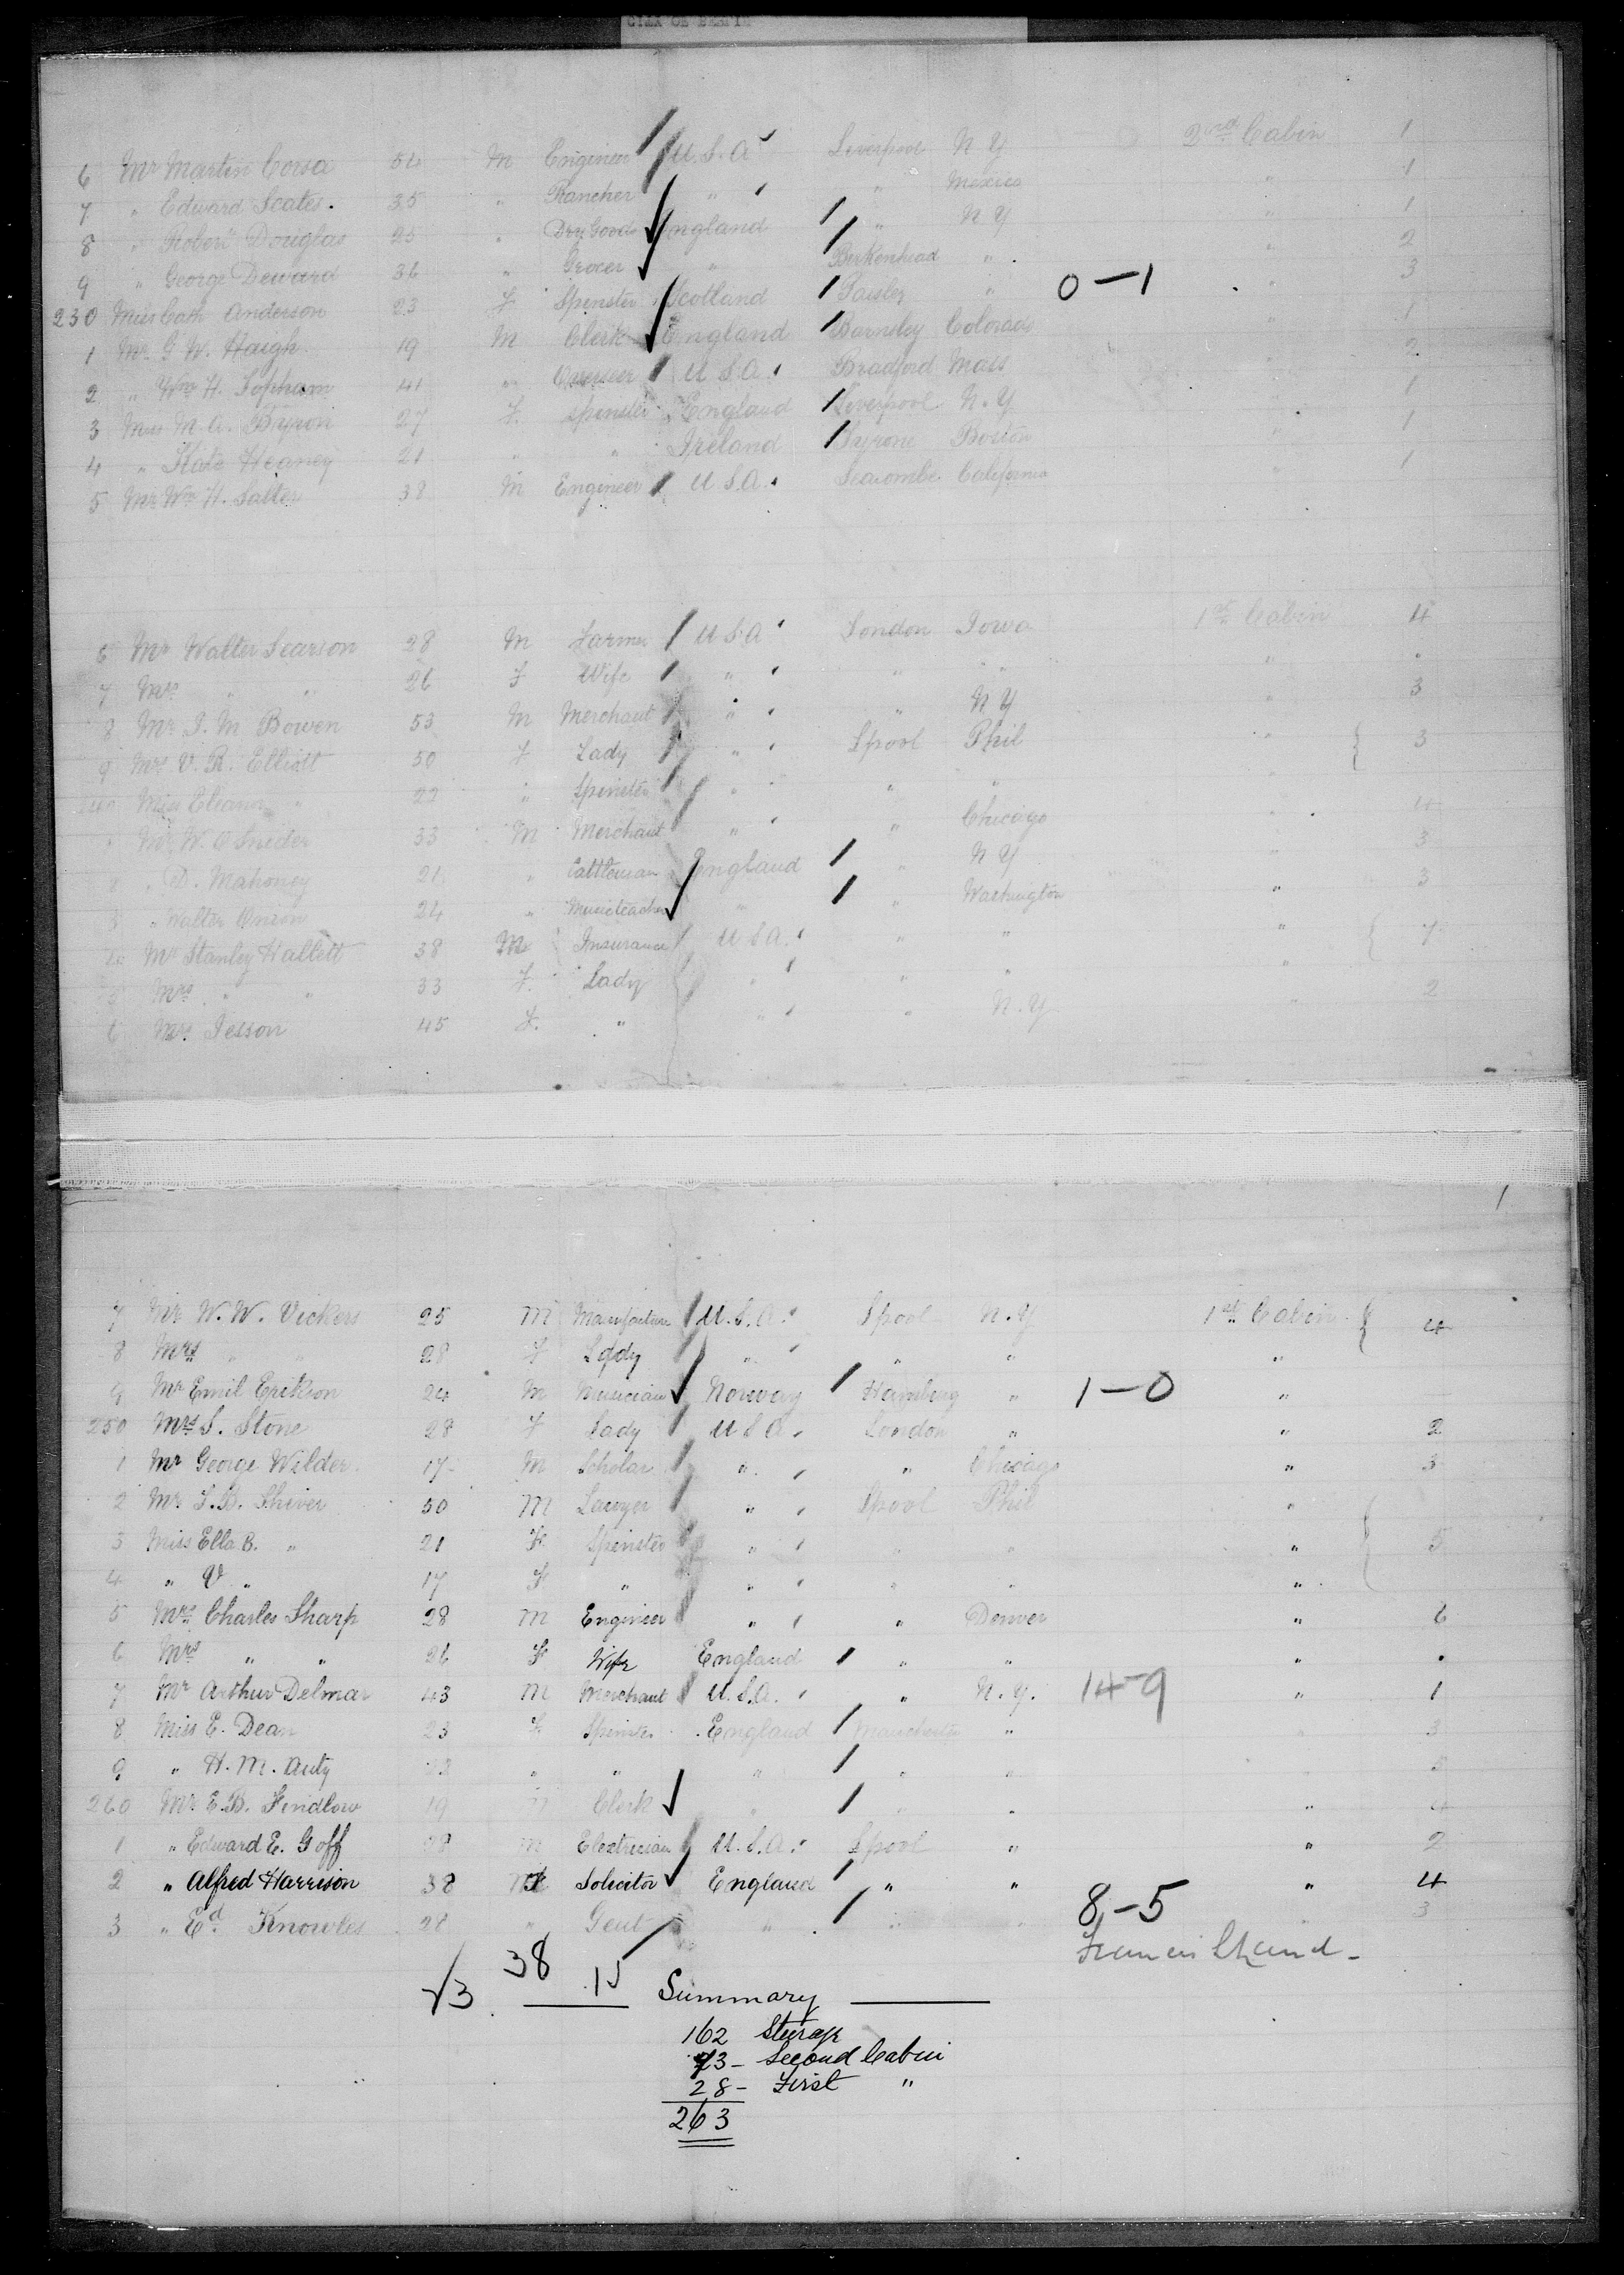 6 Mr Martin Corsa 54 M Engineer U.S.A Liverpool N Y 2nd Cabin 1
7 " Edward Scates. 35 " Rancher " " Mexico " 1
8 " Robert Douglas 25 " Dry Goods England " N Y " 1
9 " George Deward 36 " Grocer " Birkenhead " " 2
230 Miss Cath Anderson 23 F Spinster Scotland Paisley " 0-1 " 3
1 Mr G W. Haigh 19 M Clerk England Barnsley Colorado " 1
2 " Wm H. Topham 41 " Overseer U S A. Bradford Mass " 2
3 Miss M. A. Byron 27 F. Spinster England Liverpool N.Y " 1
4 " Kate Heaney 21 " " Ireland Tyrone Boston " 1
5 Mr Wm H. Salter 38 M Engineer U S.A. Seacombe California " 1
6 Mr Walter Searson 28 M Farmer U S A London Iowa 1st Cabin 4
7 Mrs " " 26 F Wife " " " " "
8 Mr I. M Bowen 53 M Merchant " " N Y " 3
9 Mrs V. R. Elliott 50 F Lady " Lpool Phil " 3
240 Miss Eleanor " 22 " Spinster " " "
Mr W. O Snider 33 M Merchant " " Chicago " 4
" D. Mahoney 21 " Cattleman England " N Y " 3
3 " Walter Onion 24 " Musicteacher " " Washington " 3
Mr Stanley Hallett 38 M Insurance U S A. " " " 7
5 Mrs " " 33 F. Lady " " " "
6 Mrs Jesson 45 F. " " " N.Y " 2
1
7 Mr W. W. Vickers 25 M Manufacturer U.S.A. Lpool N.Y 1st Cabin 4
8 Mrs " " 28 F Lady " " " "
9 Mr Emil Erikson 24 M Musician Norway Hamburg " 1-0 "
250 Mrs S. Stone 28 F Lady U S A. London " " 2
1 Mr George Wilder 17 M Scholar " " Chicago " 3
2 Mr L. B. Shiver 50 M Lawyer " Lpool Phil "
3 Miss Ella B. " 21 F Spinster " " " " 5
4 " V " 17 F " " " " "
5 Mr Charles Sharp 28 M Engineer " " Denver " 6
6 Mrs " " 26 F Wife England " " " "
7 Mr Arthur Delmar 43 M Merchant U.S.A. " N.Y. 14-9 " 1
8 Miss E. Dean 23 F Spinster England Manchester " 3
9 " H. M. Auty 23 " " " " "
260 Mr E. B. Findlow 19 M Clerk " " " " 4
1 " Edward E. Goff 28 M Electrician U.S.A. Lpool " " 2
2 " Alfred Harrison 38 M Solicitor England " " " 4
3 " Ed Knowles 28 " Gent " " " 8-5 " 3
38 15
Summary
162 Steerage
73 - Second Cabin
28 - First "
263